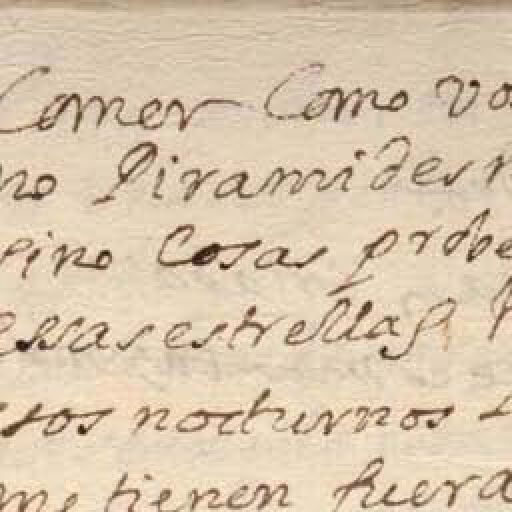 Comer Como vos
no Piramides n
sino Cosas probe
essas estrellas.
sos nocturnos
me tienen fuera